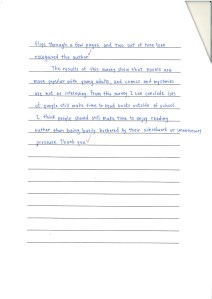 flips through a few pages and two out of nine teen
recognized the author.
The results of this survey show that novels are
more popular with young adults, and comics and mysteries
are not as interesting. From this survey I can conclude lots
of people still make time to read books outside of school.
I think people should still make time to enjoy reading
rather than being busily bothered by their schoolwork or
pressure. Thank you.